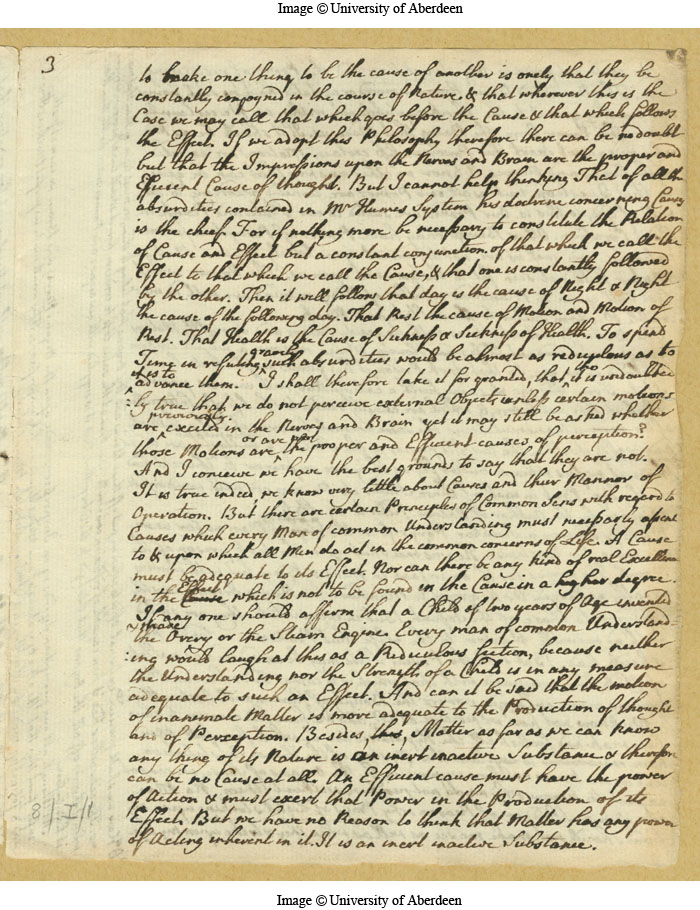 Image © University of Aberdeen
3
to make one thing to be the cause of another is onely that they be
constantly conjoyned in the course of Nature, & that wherever this is the
Case we may call that which goes before the Cause & that which follows
the Effect. If we adopt this Philosophy therefore there can be no doubt
but that the Impressions upon the Nerves and Brain are the proper and
Efficient Cause of thought. But I cannot help thinking That of all the
absurdities contained in Mr Humes System his doctrine concerning Causes
is the chief. For if nothing more be necessary to constitute the Relation
of Cause and Effect but a constant conjunction of that which we call the
Effect to that which we call the Cause, & that one is constantly followed
by the other. Then it will follow that day is the cause of Night & Night
the cause of the following day. That Rest the cause of Motion and Motion of
Rest. That Health is the Cause of Sickness & Sickness of Health. To spend
Time in refuting gravely such absurdities would be almost as rediculous as to
it is to
advance them. I shall therefore take it for granted, that tho it is undoubted
:ly true that we do not perceive external Objects unless certain motions
are previously excited in the Nerves and Brain yet it may still be asked whether
those Motions are or are not the proper and Efficient causes of perception?
And I conceive we have the best grounds to say that they are not.
It is true indeed, we know very little about Causes and their Manner of
Operation. But there are certain Principles of Common Sens with regard to
Causes which every Man of common Understanding must necessarly assent
to & upon which all Men do act in the common concerns of Life. A Cause
must be adequate to its Effect. Nor can there be any kind of real Excellence
in the Cause Effect which is not to be found in the Cause in a higher degree.
If any one should affirm that a Child of two years of Age invented
& made
the Orrery or the Steam Engine. Every man of common Understand=
:ing would laugh at this as a Ridiculous fiction, because neither
the Understanding nor the Strength of a Child is in any measure
adequate to such an Effect. And can it be said that the motion
of inanimate Matter is more adequate to the Production of thought
and of Perception. Besides, this, Matter as far as we can know
any thing of its Nature is an inert inactive Substance & therefore
can be no Cause at all. An Efficient cause must have the power
of Action & must exert that Power in the Production of its
Effect. But we have no Reason to think that Matter has any power
of Acting inherent in it. It is an inert inactive Substance.
8/I/1
Image © University of Aberdeen